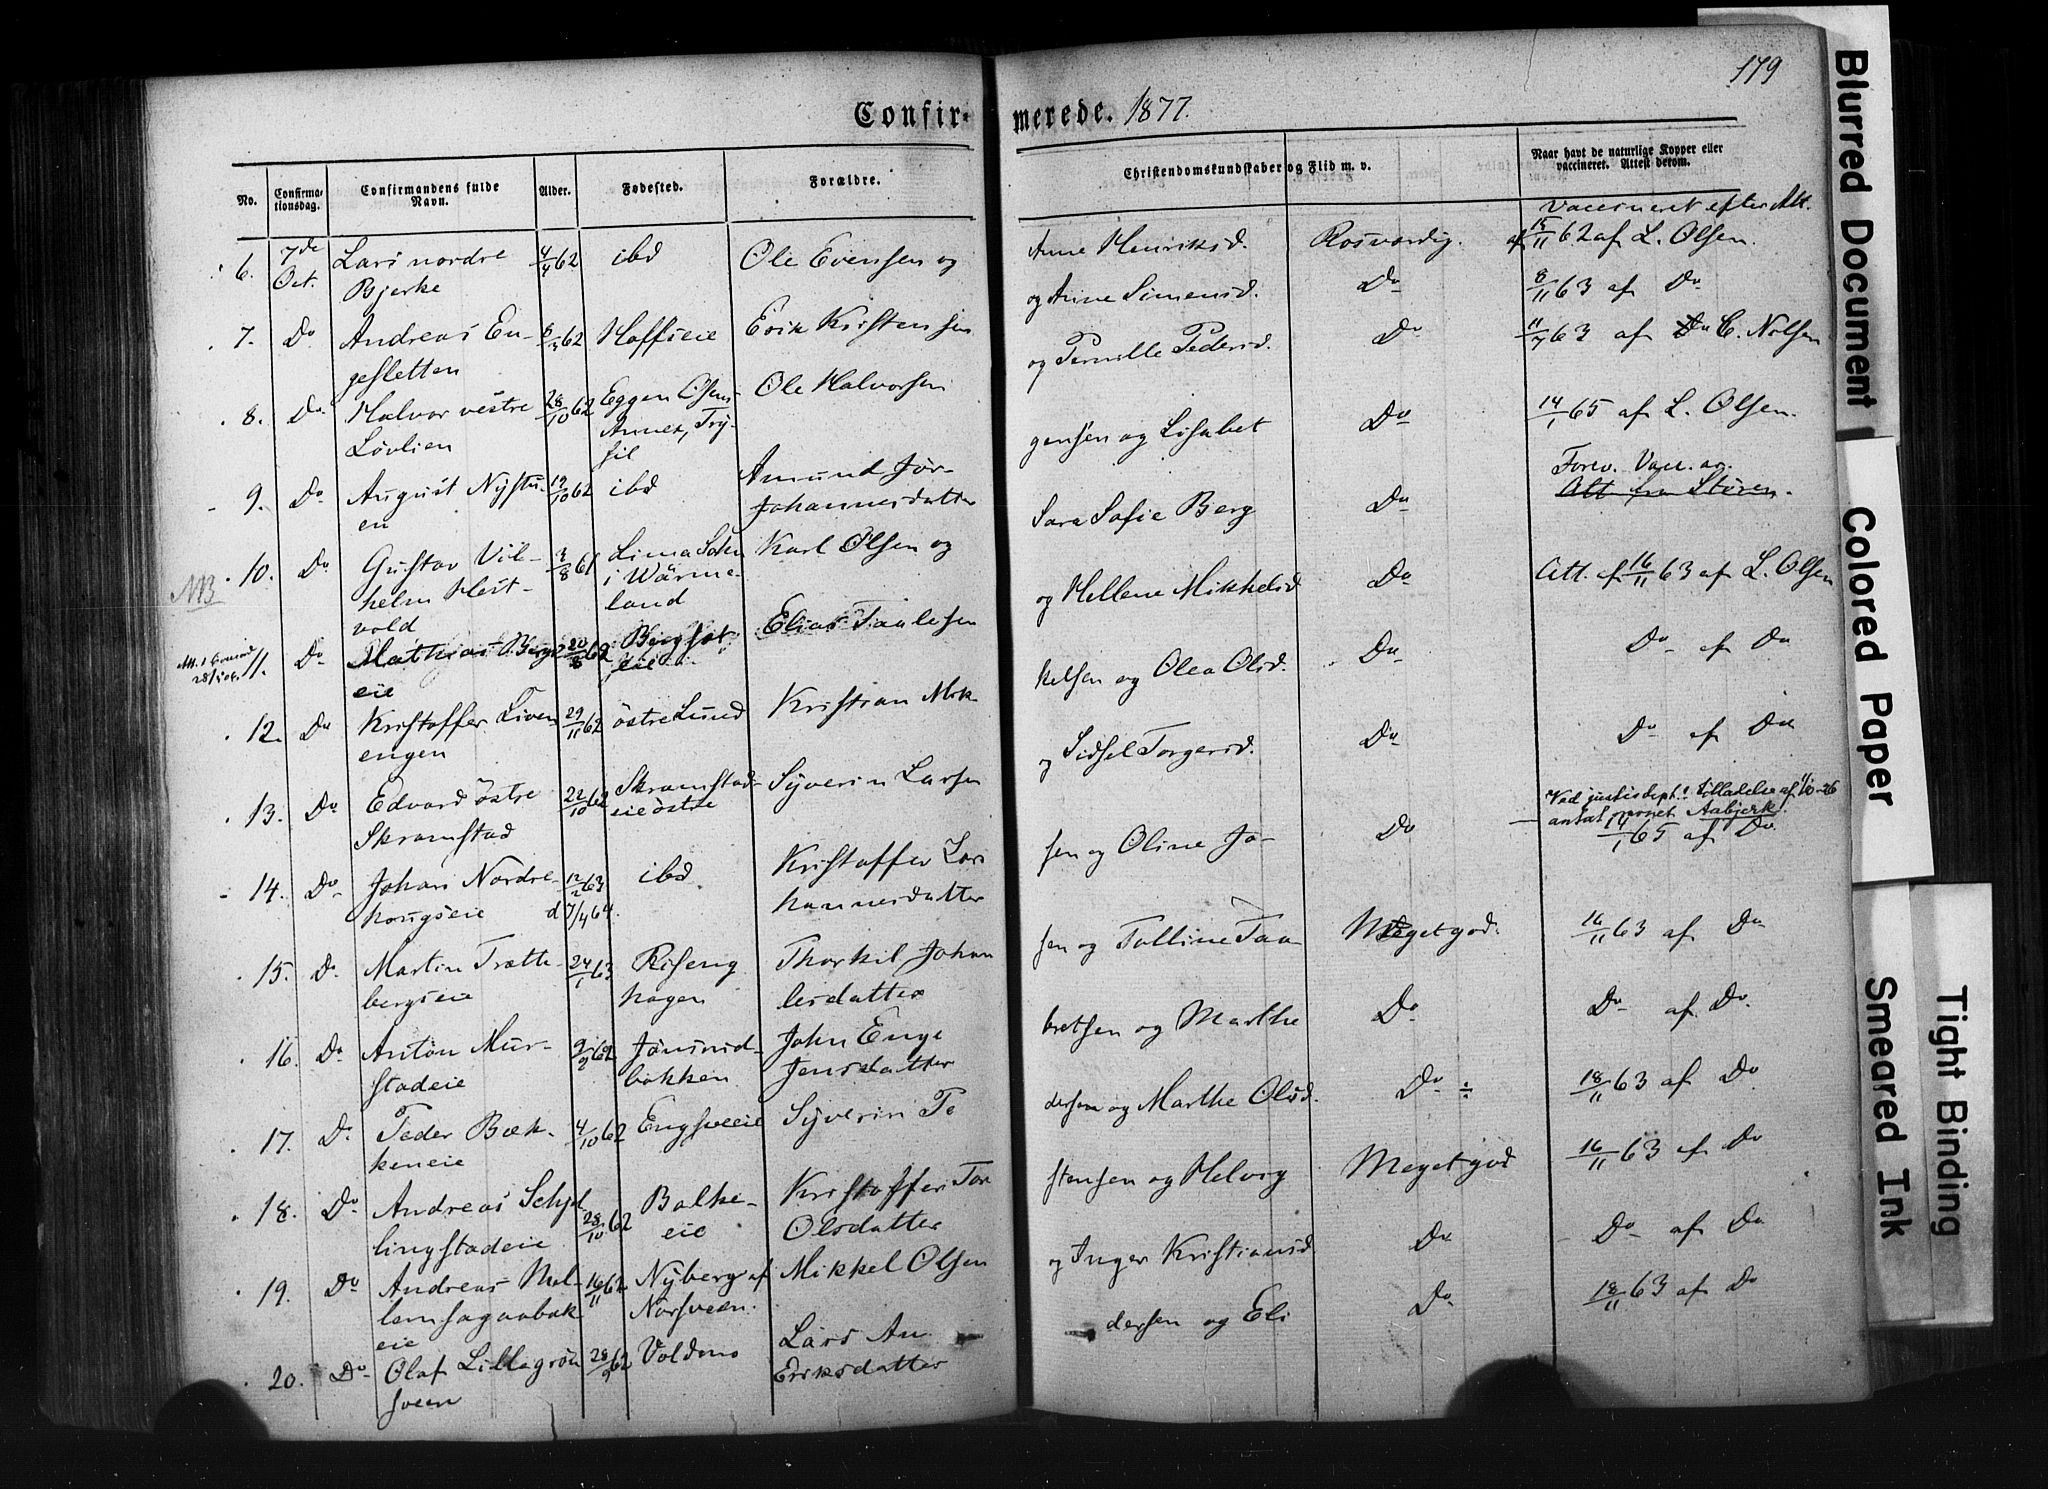 179
Confirmerede. 1877.
No.
Confirmationsdag.
Confirmandens fulde Navn.
Alder.
Fødested.
Forældre.
Christendomskundskaber og Flid m. v.
Naar havt de naturlige Kopper eller vaccineret. Attest derom.
vaccineret efter Att.
6. 7de Oct. Lars nordre Bjerke 4/4 62 ibd Ole Evensen og Anne Henriksd. Rosværdig. af 15/11 62 af L. Olsen.
7. Do Andreas Engesletten 8/4 62 Hoffseie Erik Kristensen og Anne Simensd. Do 8/11 63 af Do
8. Do Halvor vestre Løvlien 28/10 62 Eggen Osens Annex, Trysil Ole Halvorsen og Pernille Pedersd. Do 11/7 63 af C. Nilsen
9. Do August Nystuen 19/10 62 ibd Amund Jørgensen og Lisabet Johannesdatter Do 14/1 65 af L. Olsen.
10. Do Gustav Vilhelm Hestvold 3/8 61 Lima Sokn i Wärmeland Karl Olsen og Sara Sofie Berg Do Forev. Vacc. ar.
Att fra Støren.
NB
11. Do Mathias Bergseie 20/8 62 Bergseteie Elias Paulsen og Hellene Mikkelsd Do Att. af 16/11 63 af L. Olsen
28/5 06.
12. Do Kristoffer Livenengen 29/11 62 østre Lund Kristian Mikkelsen og Olea Olsd. Do Do af Do
13. Do Edvard østre Skramstad 22/10 62 Skramstadeie østre Syverin Larsen og Sidsel Torgersd. Do Do af Do
Ved justisdept.s tilladelse af 1/10-26 antat navnet Aabjerk.
14. Do Johan Nordrehougseie 12/2 63 ibd Kristoffer Larssen og Oline Johannesdatter Do 14/1 65 af Do
d 7/4 64.
15. Do Martin Trættebergseie 24/1 63 Risenghagen Thorkil Johansen og Talline Taalesdatter Meget god. 16/11 63 af Do
16. Do Anton Murstadeie 9/9 62 Jønsrudbakken John Engebretsen og Marthe Jensdatter Do Do af Do.
17. Do Peder Bækkeneie 4/10 62 Engsveeie Syverin Pedersen og Marthe Olsd. Do ÷ 18/11 63 af Do
18. Do Andreas Schjellingstadeie 28/10 62 Balkeeie Kristoffer Torstensen og Helvig Olsdatter Meget god 16/11 63 af Do
19. Do Andreas Mellemsagaabakeie 16/11 62 Nyberg af Norsveen. Mikkel Olsen og Inger Kristiansd. Do Do af Do
20. Do Olaf Lillegrønsveen 28/9 62 Voldmo Lars Andersen og Eli Eriksdatter Do 18/11 63 af Do
Blurred Document
Colored Paper
Smeared Ink
Tight Binding